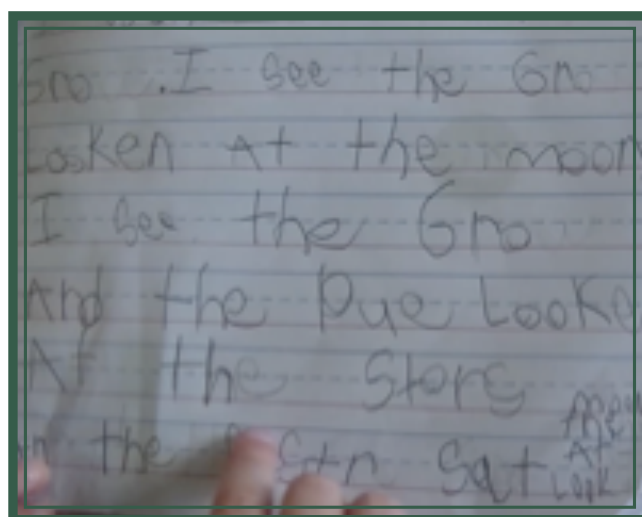 Gro . I see the Gro
Looken At the moon
I see the Gro
And the Pue Looke
At the Stors
the Str Sat
they
At
Look